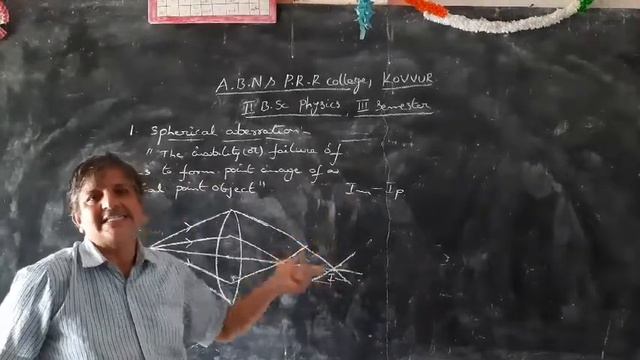 A.B.N & P.R.R College, KOVVUR
II B.Sc Physics, III Semester
1. Spherical aberration -
" The inability (or) failure of
s to form point image of a
al point object"
Im - Ip
I